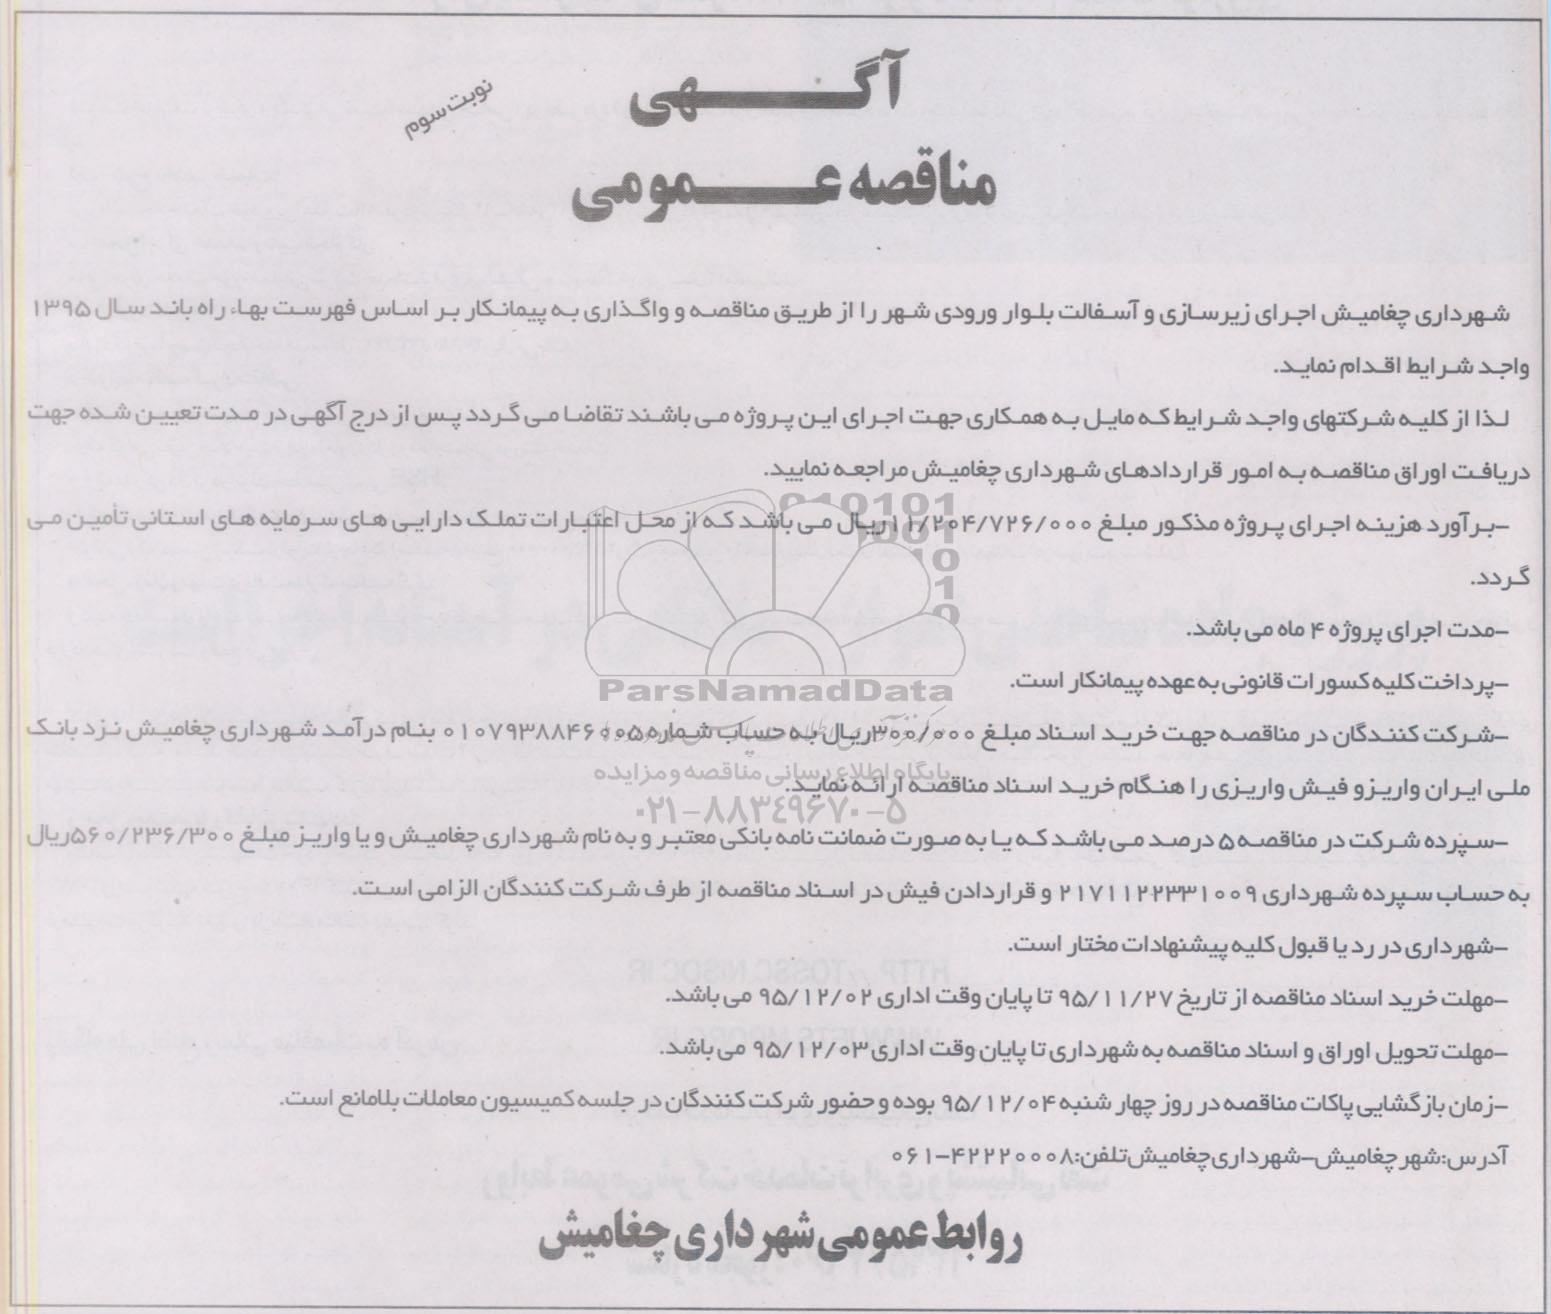 آگهی
نوبت سوم
مناقصه عمومی
شهرداری چغامیش اجرای زیرسازی و آسفالت بلوار ورودی شهر را از طریق مناقصه و واگذاری به پیمانکار بر اساس فهرست بهاء راه باند سال ۱۳۹۵
واجد شرایط اقدام نماید.
لذا از کلیه شرکتهای واجد شرایط که مایل به همکاری جهت اجرای این پروژه می باشند تقاضا می گردد پس از درج آگهی در مدت تعیین شده جهت
دریافت اوراق مناقصه به امور قراردادهای شهرداری چغامیش مراجعه نمایید.
-برآورد هزینه اجرای پروژه مذکور مبلغ ۱۱/۲۰۴/۷۲۶/۰۰۰ریال می باشد که از محل اعتبارات تملک دارایی های سرمایه های استانی تأمین می
گردد.
-مدت اجرای پروژه ۴ ماه می باشد.
-پرداخت کلیه کسورات قانونی به عهده پیمانکار است.
-شرکت کنندگان در مناقصه جهت خرید اسناد مبلغ ۳۰۰/۰۰۰ریال به حساب شماره ۰۱۰۷۹۳۸۸۴۶۰۰۵ بنام درآمد شهرداری چغامیش نزد بانک
ملی ایران واریز و فیش واریزی را هنگام خرید اسناد مناقصه ارائه نماید.
-سپرده شرکت در مناقصه ۵ درصد می باشد که یا به صورت ضمانت نامه بانکی معتبر و به نام شهرداری چغامیش و یا واریز مبلغ ۵۶۰/۲۳۶/۳۰۰ریال
به حساب سپرده شهرداری ۲۱۷۱۱۲۲۳۳۱۰۰۹ و قراردادن فیش در اسناد مناقصه از طرف شرکت کنندگان الزامی است.
-شهرداری در رد یا قبول کلیه پیشنهادات مختار است.
-مهلت خرید اسناد مناقصه از تاریخ ۹۵/۱۱/۲۷ تا پایان وقت اداری ۹۵/۱۲/۰۲ می باشد.
-مهلت تحویل اوراق و اسناد مناقصه به شهرداری تا پایان وقت اداری ۹۵/۱۲/۰۳ می باشد.
-زمان بازگشایی پاکات مناقصه در روز چهار شنبه ۹۵/۱۲/۰۴ بوده و حضور شرکت کنندگان در جلسه کمیسیون معاملات بلامانع است.
آدرس:شهر چغامیش-شهرداری چغامیش تلفن:۴۲۲۲۰۰۰۸-۰۶۱
روابط عمومی شهرداری چغامیش
ParsNamadData
پایگاه اطلاع رسانی مناقصه و مزایده
۰۲۱-۸۸۳۴۹۶۷۰-۵